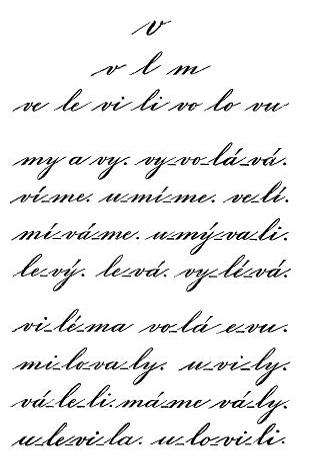 v
v l m
ve le vi li vo lo vu
my a vy. vy-vo-lá-vá.
ví-me. u-mí-me. ve-lí.
mí-vá-me. u-mý-va-li.
le-vý. le-vá. vy-lí-vá.
vi-lé-ma vo-lá e-vu.
mi-lo-va-ly. u-vi-ly.
vá-le-li. má-me vá-ly.
u-le-vi-la. u-lo-vi-li.